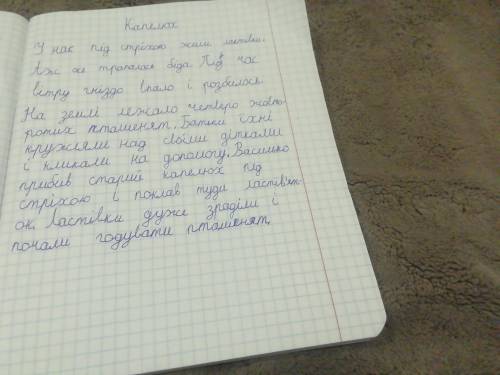 Капелюх
У нас під стріхою жили ластівки.
Аж ось трапилося біда. Під час
вітру гніздо впало і розбилося.
На землі лежало четверо жовто-
ротих пташенят. Батьки їхні
кружляли над своїми дітками
і кликали на допомогу. Василько
прибив старий капелюх під
стріхою і поклав туди ластів'ят-
ок. Ластівки дуже зраділи і
почали годувати пташенят.